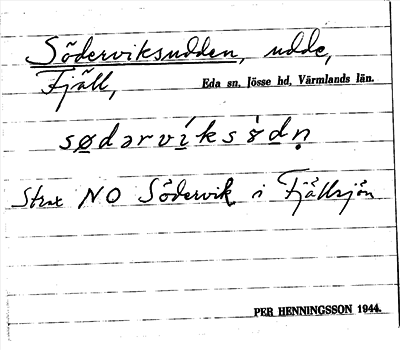 Södерviksudden, udde,
Fjäll, Eda sn, Jösse hd, Värmlands län.
sødərvíks`ɤdṇ
Strax NO Södervik i Fjällsjön
PER HENNINGSSON 1944.